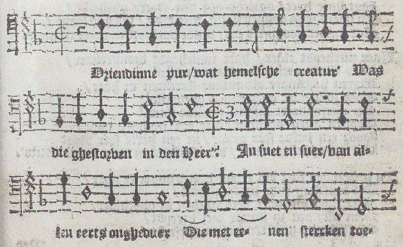 Vriendinne pur/wat hemelsche creatur' Was
die ghestorven in den Heer'? In suet en suer/van al-
len eerts onghevuer Die met ee- nen stercken toe-